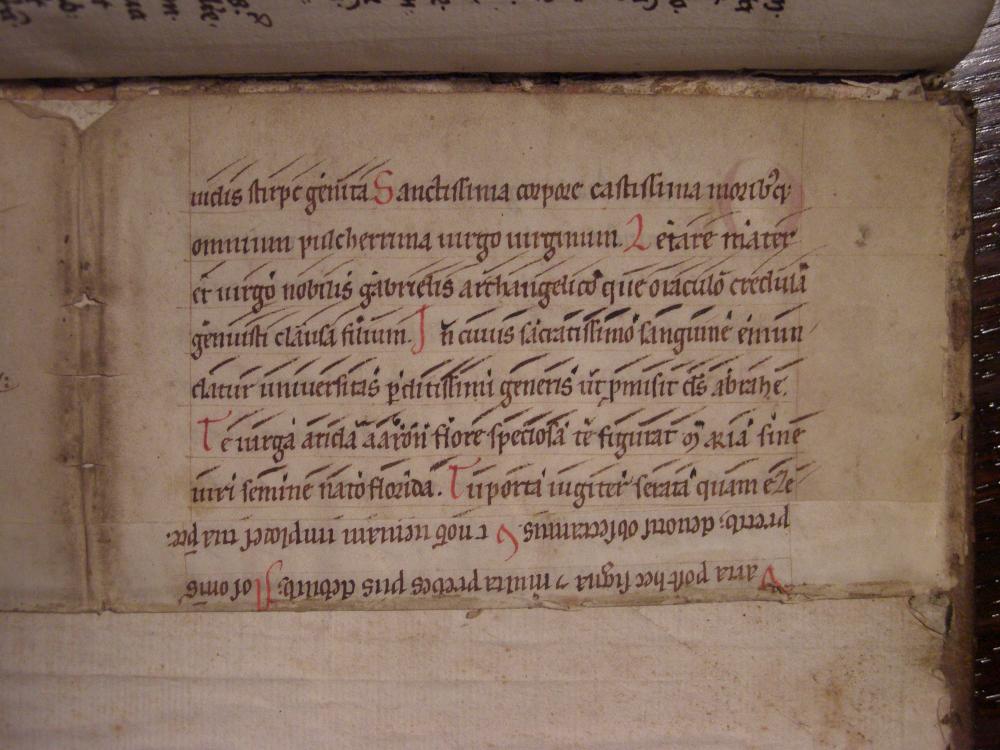 uidis stirpe genita Sanctissima corpore castissima moribꝰ q;
omnium pulcherrima uirgo uirginum. Letare mater
et uirgo nobilis gabrielis archangelico que oraculo credula
genuisti clausa filium. In cuius sacratissimo sanguine emun
datur uniuersitas ꝑditissimi generis ut ꝓmisit d̅s abrahe.
Te uirga arida aaron flore speciosa te figurat MARIA sine
uiri semine nato florida. Tu porta iugiter serata quam eZe
precib; deuoti obsecramus
aria post hec ligna ⁊ multa debitib; Sol om̅s